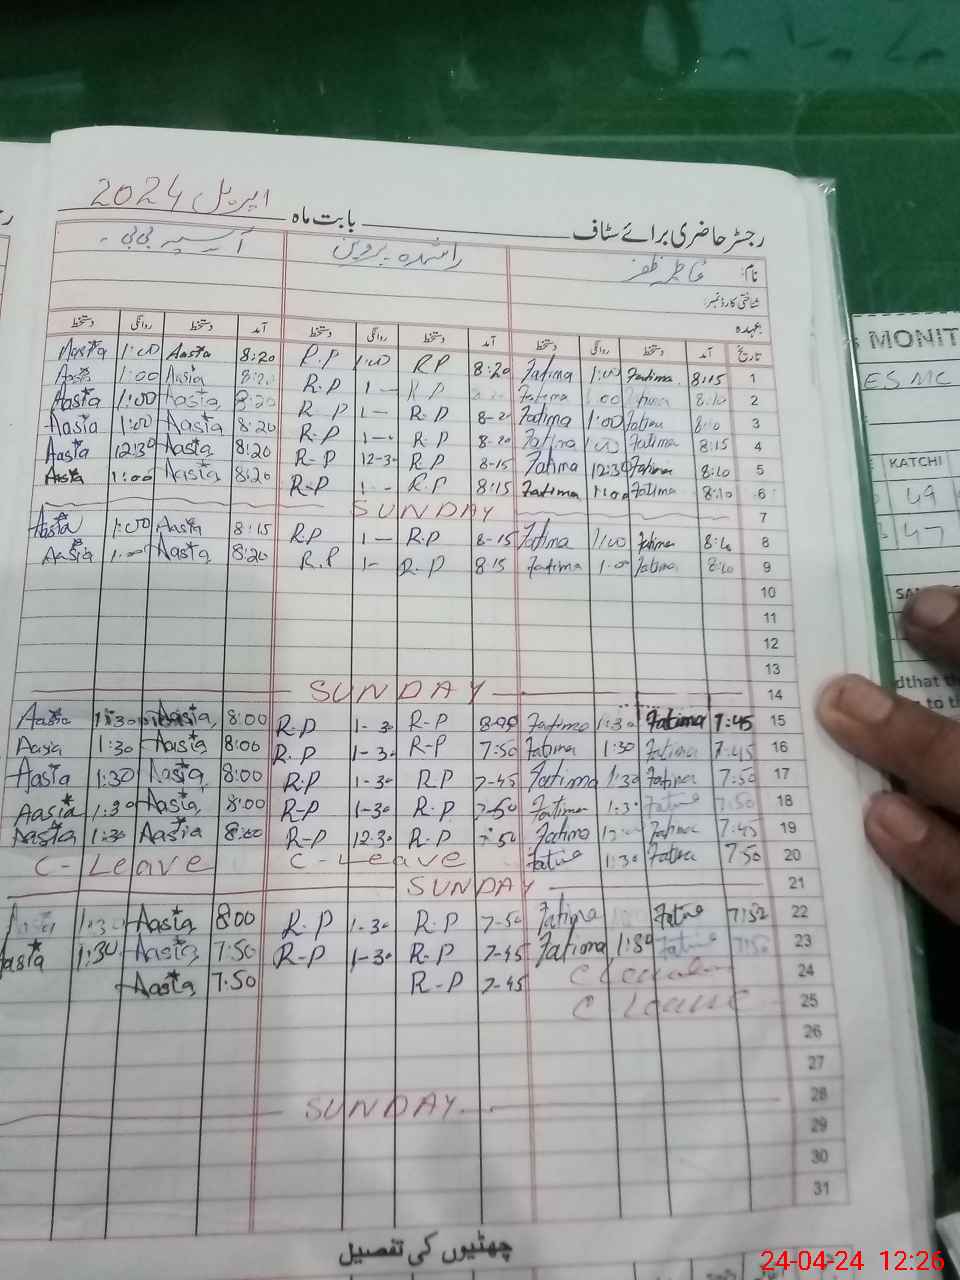 رجسٹر حاضری برائے سٹاف بابت ماہ اپریل 2024
نام: راشدہ پروین آسیہ بی بی
شناختی کارڈ نمبر:
عہدہ
تاریخ آمد دستخط روانگی دستخط آمد دستخط روانگی دستخط آمد دستخط روانگی دستخط
Aasta 1:00 Aasta 8:20 R.P 1:00 RP 8:20 Fatima 1:00 Fatima 8:15 1
1:00 Aasia R.P 1— 2
Aasta 1:00 Aasia 8:20 R-P 1— R.P 8-20 Fatima 1:00 3
Aasia 1:00 Aasia 8:20 R.P 1— R.P 8-20 Fatima Fatima 8:15 4
Aasta 12:30 Aasta 8:20 R-P 12-30 R.P 8-15 Fatima 12:30 Fatima 8:10 5
Asta 1:00 Aasia 8:20 R-P 1— R.P 8:15 Fatima 1:00 Fatima 8:10 6
SUNDAY 7
Aasia 1:00 Aasia 8:15 R.P 1— R.P 8-15 Fatima 1:00 Fatima 8:10 8
Aasia 1:00 Aasia 8:20 R.P 1- R-P 8:15 Fatima 1:00 Fatima 8:10 9
10
11
12
13
SUNDAY 14
Aasia 1:30 Aasia 8:00 R-P 1-30 R-P Fatima 1:30 Fatima 7:45 15
Aasia 1:30 Aasia 8:00 R-P 1-30 R-P 7:50 Fatima 1:30 Fatima 7:45 16
Aasia 1:30 Aasia 8:00 R.P 1-30 R.P 7-45 Fatima 1:30 Fatima 7:50 17
Aasia 1:30 Aasia 8:00 R-P 1-30 R.P 7-50 Fatima 1:30 7:50 18
Aasta 1:30 Aasia 8:00 R-P 12-30 R.P 7:50 Fatima Fatima 7:45 19
C-Leave C-Leave 1:30 7:50 20
SUNDAY 21
1:30 Aasia 8:00 R.P 1-30 R.P 7-50 Fatima 7:52 22
asta 1:30 Aasia 7:50 R-P 1-30 R.P 7-45 Fatima 1:30 7:50 23
Aasia 7:50 R-P 7-45 24
C Leave 25
26
27
SUNDAY 28
29
30
31
چھٹیوں کی تفصیل
MONIT
ES MC
KATCHI
49
47
dthat the
to the
24-04-24 12:26